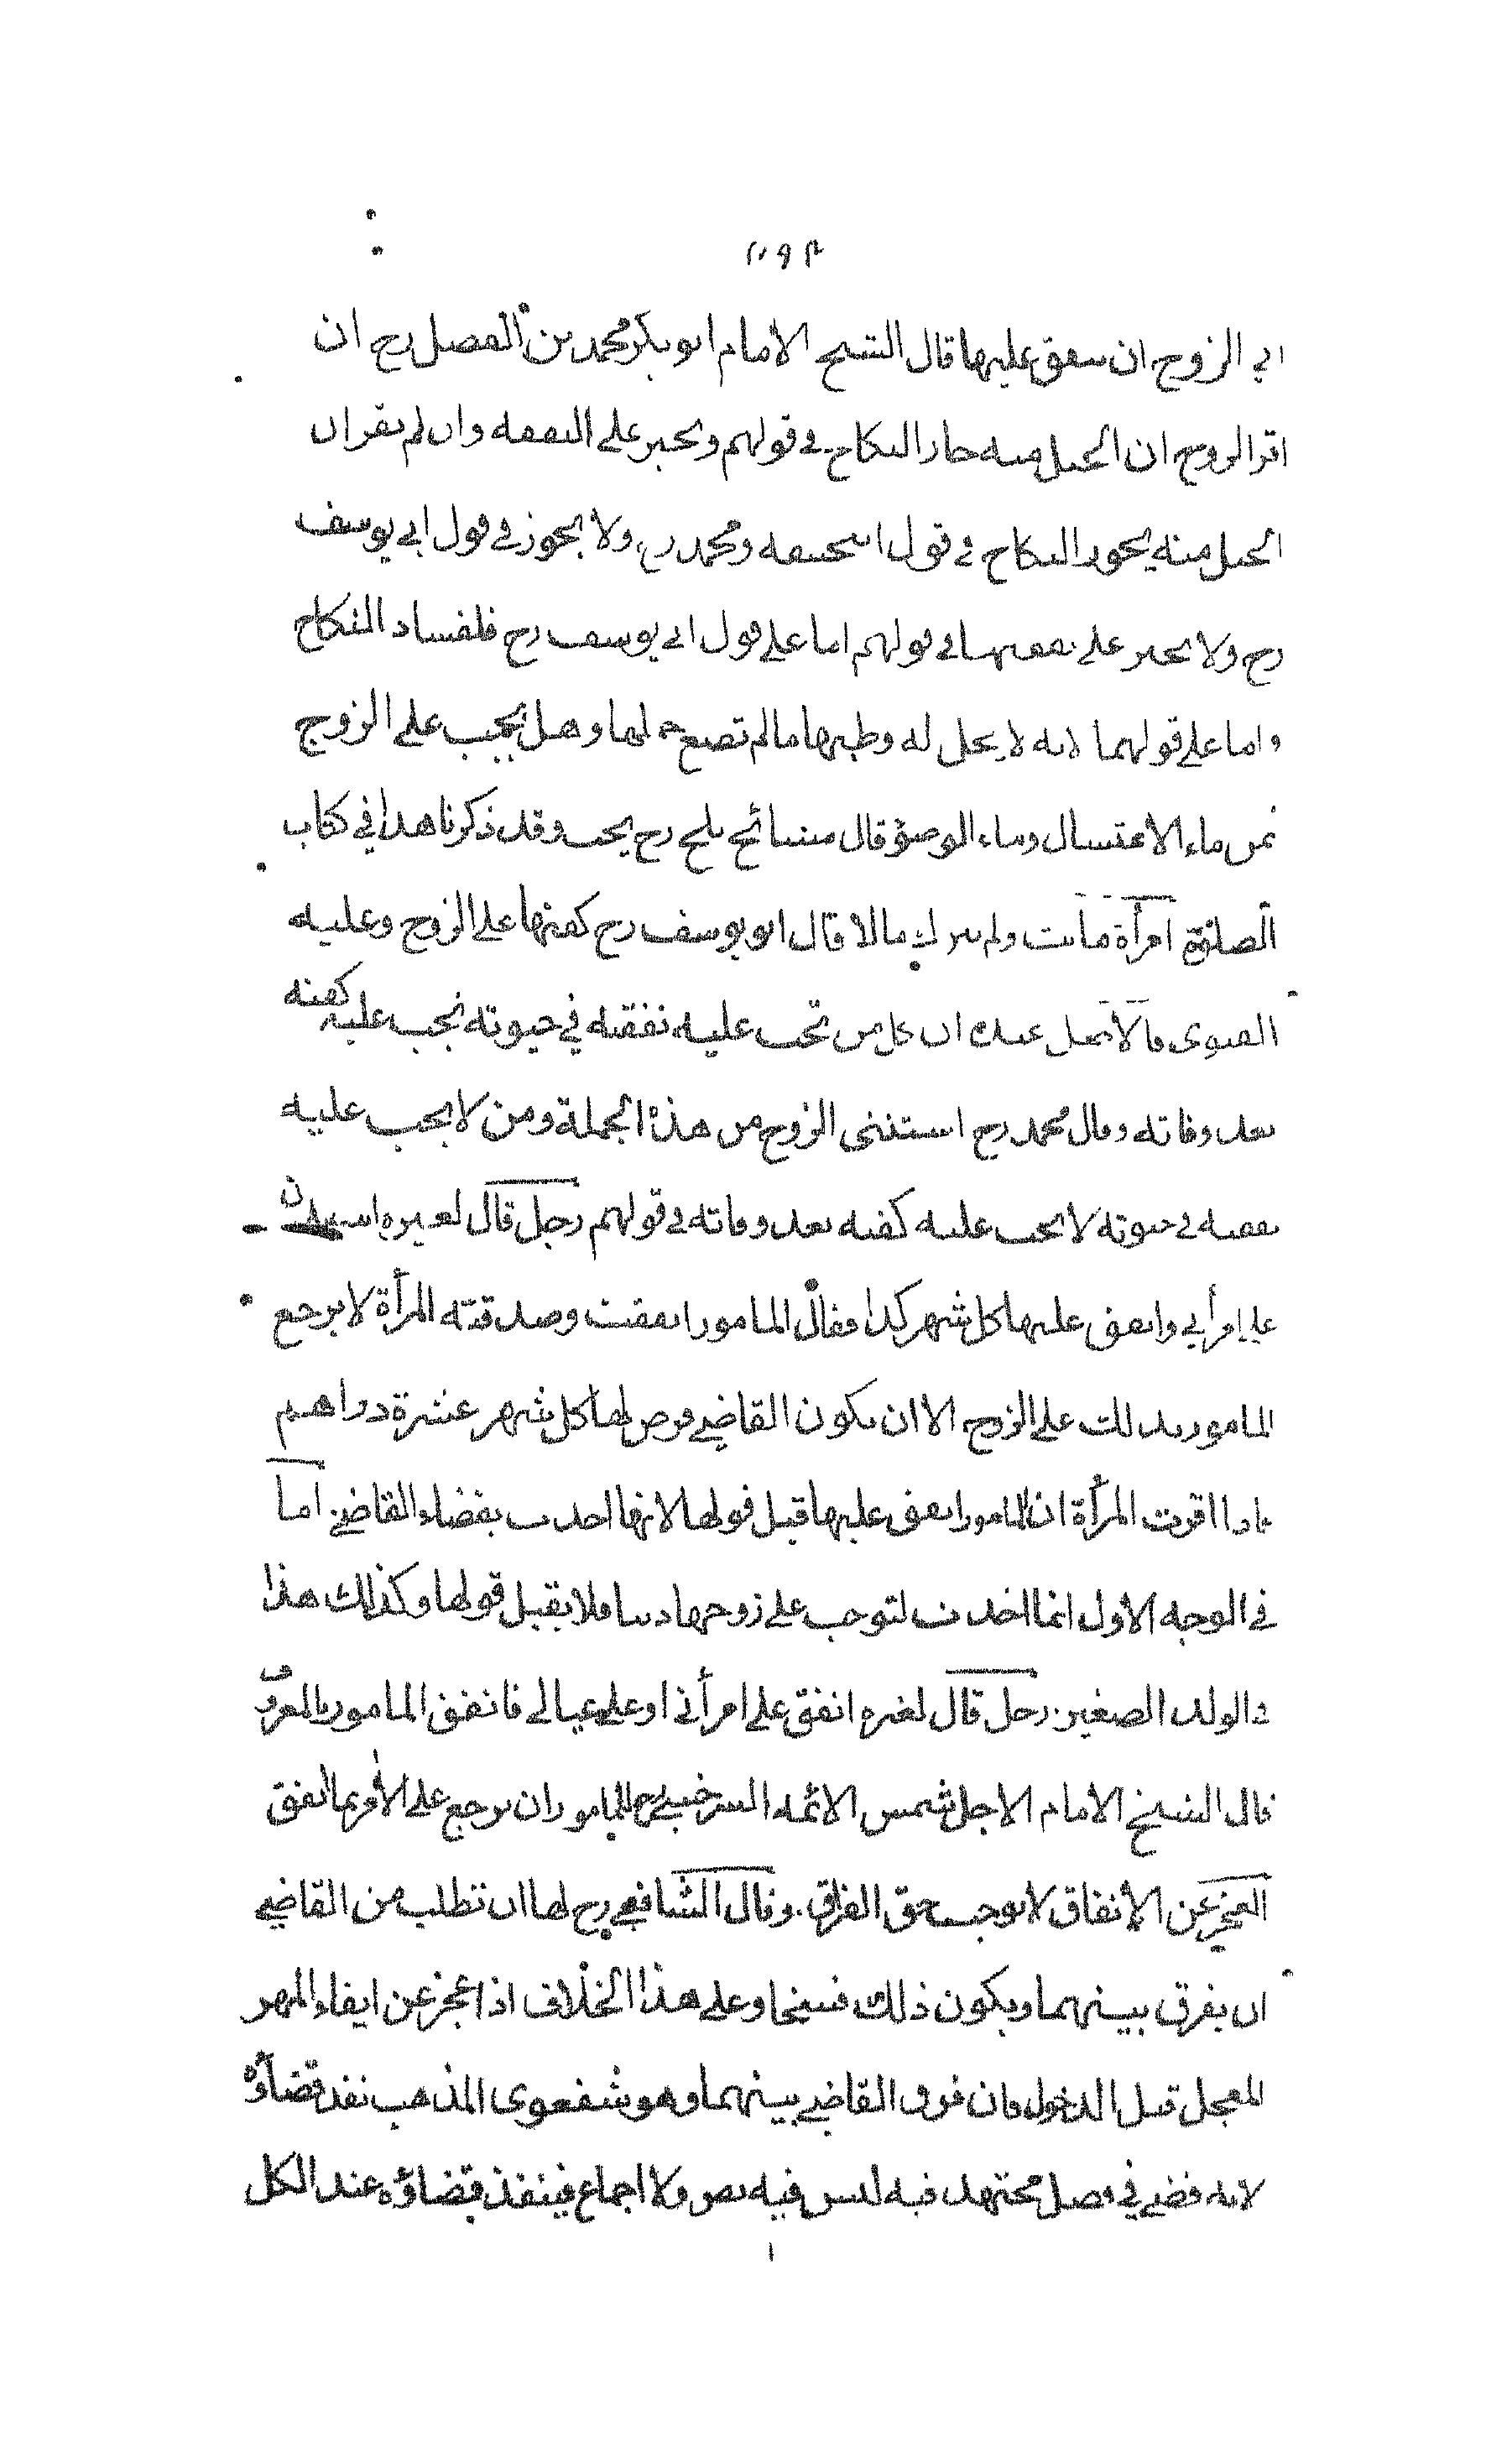 ابي الزوج ان ينفق عليها قال الشيخ الامام ابو بكر محمد بن الفضل رح ان
اقر الزوج ان الحبل منه جاز النكاح في قولهم ويجبر على النفقة وان لم يقر ان
الحبل منه يجوز النكاح في قول ابيحنيفه ومحمد رح ولا يجوز في قول ابي يوسف
رح ولا يجبر على نفقتها في قولهم اما على قول ابي يوسف رح فلفساد النكاح
واما على قولهما لانه لا يحل له وطيها مالم تضع حملها وهل يجب على الزوج
ثمن ماء الاغتسال وماء الوضوء قال مشائخ بلخ رح يجب وقد ذكرنا هذا في كتاب
الصلوة امرأة ماتت ولم تترك مالا قال ابو يوسف رح كفنها على الزوج وعليه
الفتوى والاصل عنده ان كل من تجب عليه نفقته في حيوته يجب عليه كفنه
بعد وفاته وقال محمد رح استثنى الزوج من هذه الجملة ومن لا يجب عليه
نفقته في حيوته لا يجب عليه كفنه بعد وفاته في قولهم رجل قال لغيره استدن
على امرأتي وانفق عليها كل شهر كذا فقال المامور انفقت وصدقته المرأة لا يرجع
المامور بذلك على الزوج الا ان يكون القاضي فرض لها كل شهر عشرة دراهم
فاذا اقرت المرأة ان المامور انفق عليها قبل قولها لانها اخذت بقضاء القاضي اما
في الوجه الاول انما اخذت لتوجب على زوجها دينا فلا يقبل قولها وكذلك هذا
في الولد الصغير رجل قال لغيره انفق على امرأتي او على عيالي فانفق المامور بالمعروف
قال الشيخ الامام الاجل شمس الائمه السرخسي رح للمامور ان يرجع على الآمر بما انفق
العجز عن الانفاق لا يوجب حق الفراق وقال الشافعي رح لها ان تطلب من القاضي
ان يفرق بينهما ويكون ذلك فسخا وعلى هذا الخلاف اذا عجز عن ايفاء المهر
المعجل قبل الدخول فان فرق القاضي بينهما وهو شفعوى المذهب نفذ قضاؤه
لانه قضى في فصل مجتهد فيه ليس فيه نص ولا اجماع فينفذ قضاؤه عند الكل